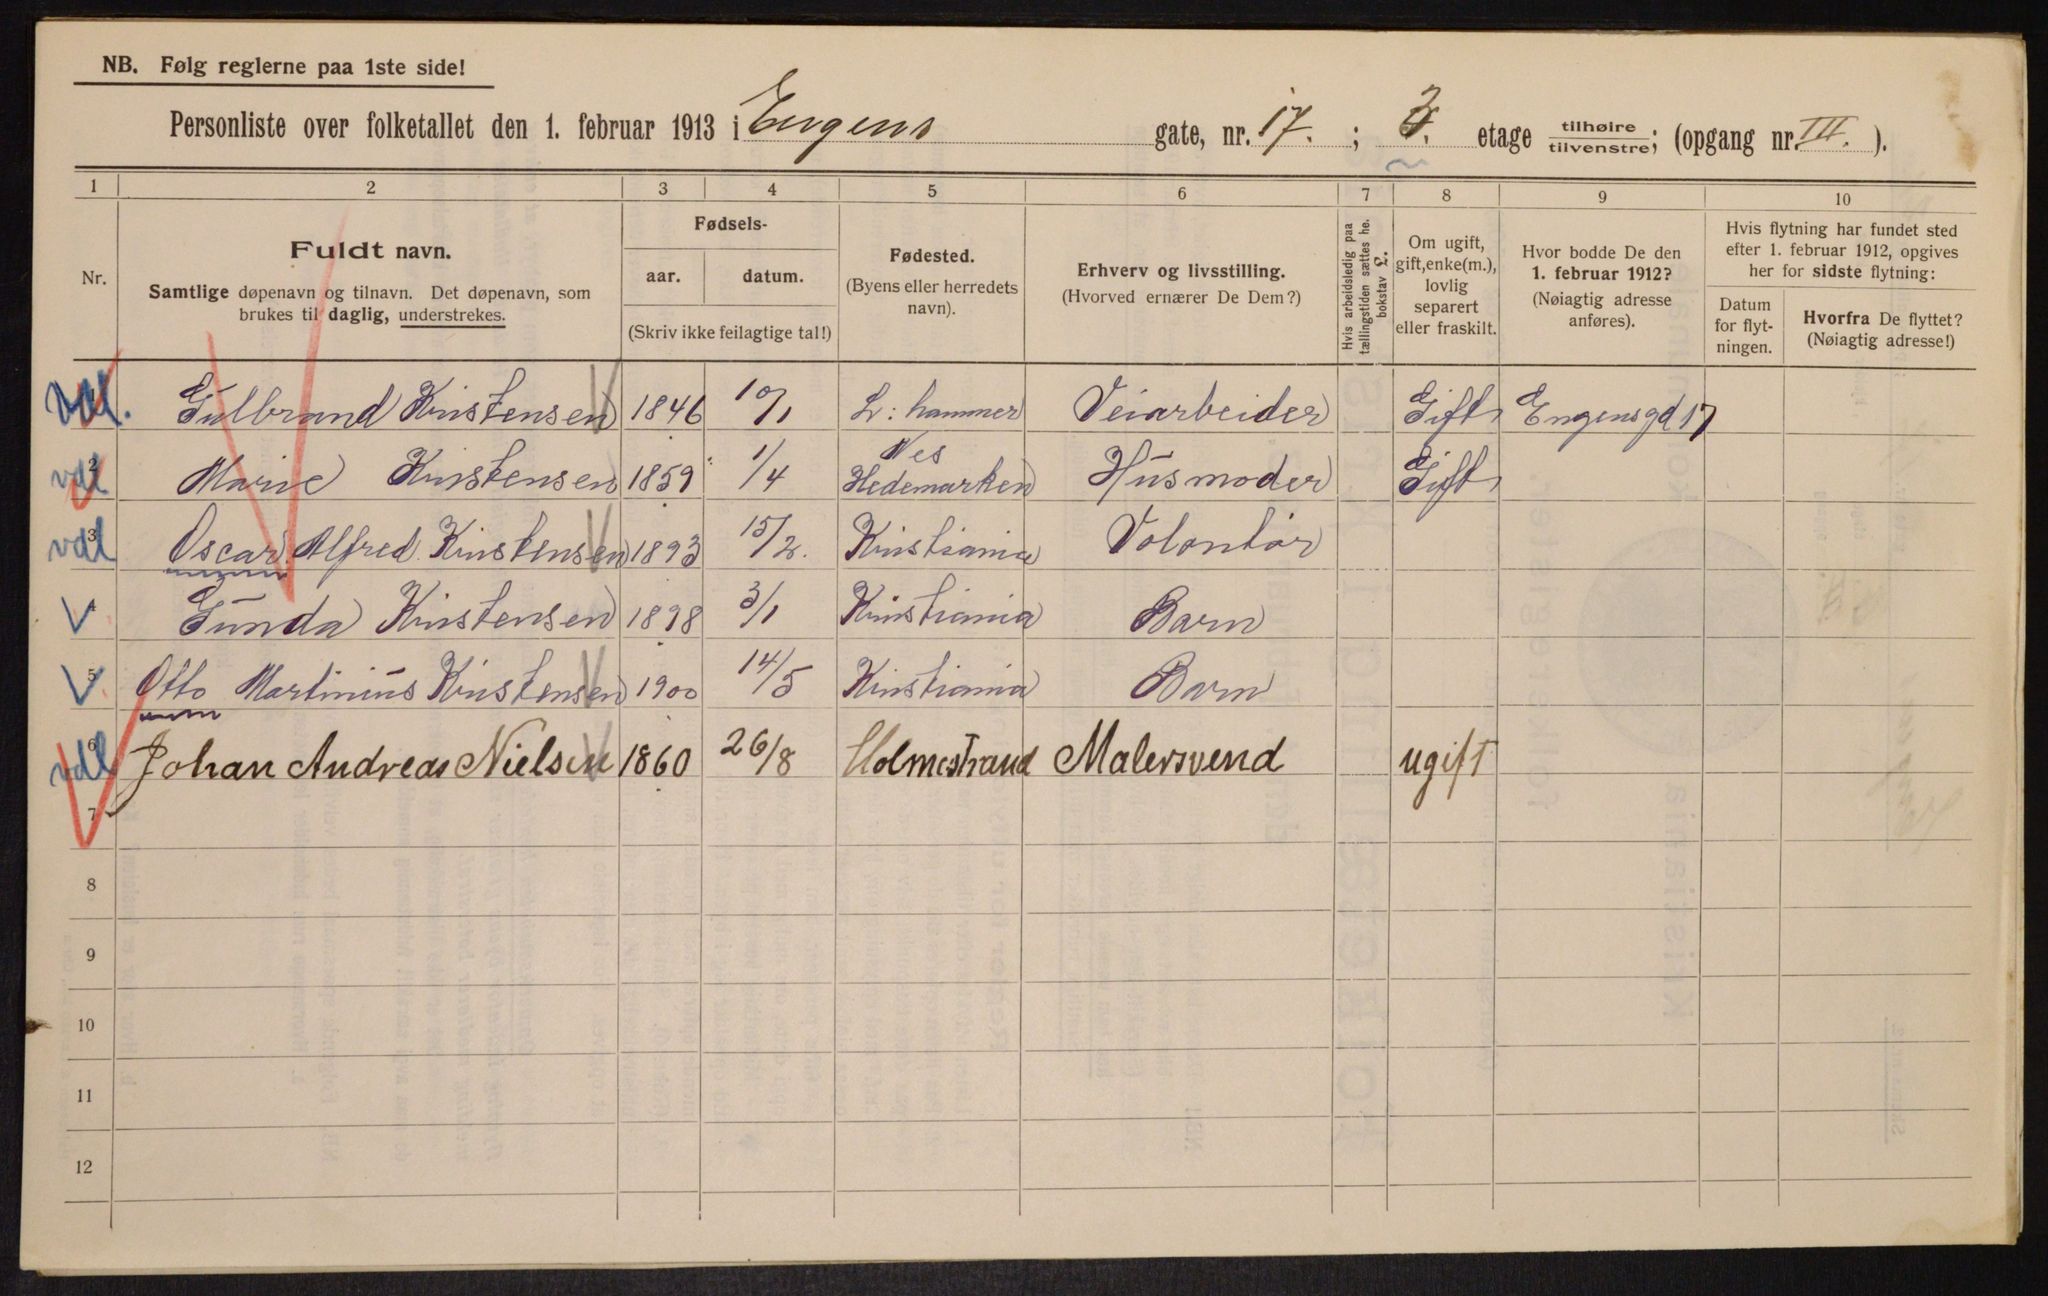 NB. Følg reglerne paa 1ste side!
Personliste over folketallet den 1. februar 1913 i Eugens gate, nr. 17. ; etage tilhøire tilvenstre; (opgang nr. III. ).
1 2 3 4 5 6 7 8 9 10
Nr.
Fuldt navn.
Samtlige døpenavn og tilnavn. Det døpenavn, som
brukes til daglig, understrekes.
Fødsels-
aar. datum.
(Skriv ikke feilagtige tal!)
Fødested.
(Byens eller herredets
navn).
Erhverv og livsstilling.
(Hvorved ernærer De Dem?)
Hvis arbeidsledig paa
tællingstiden sættes he.
bokstav L.
Om ugift,
gift, enke(m.),
lovlig
separert
eller fraskilt.
Hvor bodde De den
1. februar 1912?
(Nøiagtig adresse
anføres).
Hvis flytning har fundet sted
efter 1. februar 1912, opgives
her for sidste flytning:
Datum
for flyt-
ningen.
Hvorfra De flyttet?
(Nøiagtig adresse!)
vdl. Gulbrand Kristensen 1846 10/1 L: hammer Veiarbeider Gift Eugensgd 17
vdl 2 Marie Kristensen 1859 1/4 Nes Hedemarken Husmoder Gift
vdl 3 Oscar Alfred Kristensen 1893 15/2. Kristiania Volontør
4 Gunda Kristensen 1898 3/1 Kristiania Barn
5 Otto Martinius Kristensen 1900 14/5 Kristiania Barn
vdl 6 Johan Andreas Nielsen 1860 26/8 Holmestrand Malersvend ugift
7
8
9
10
11
12